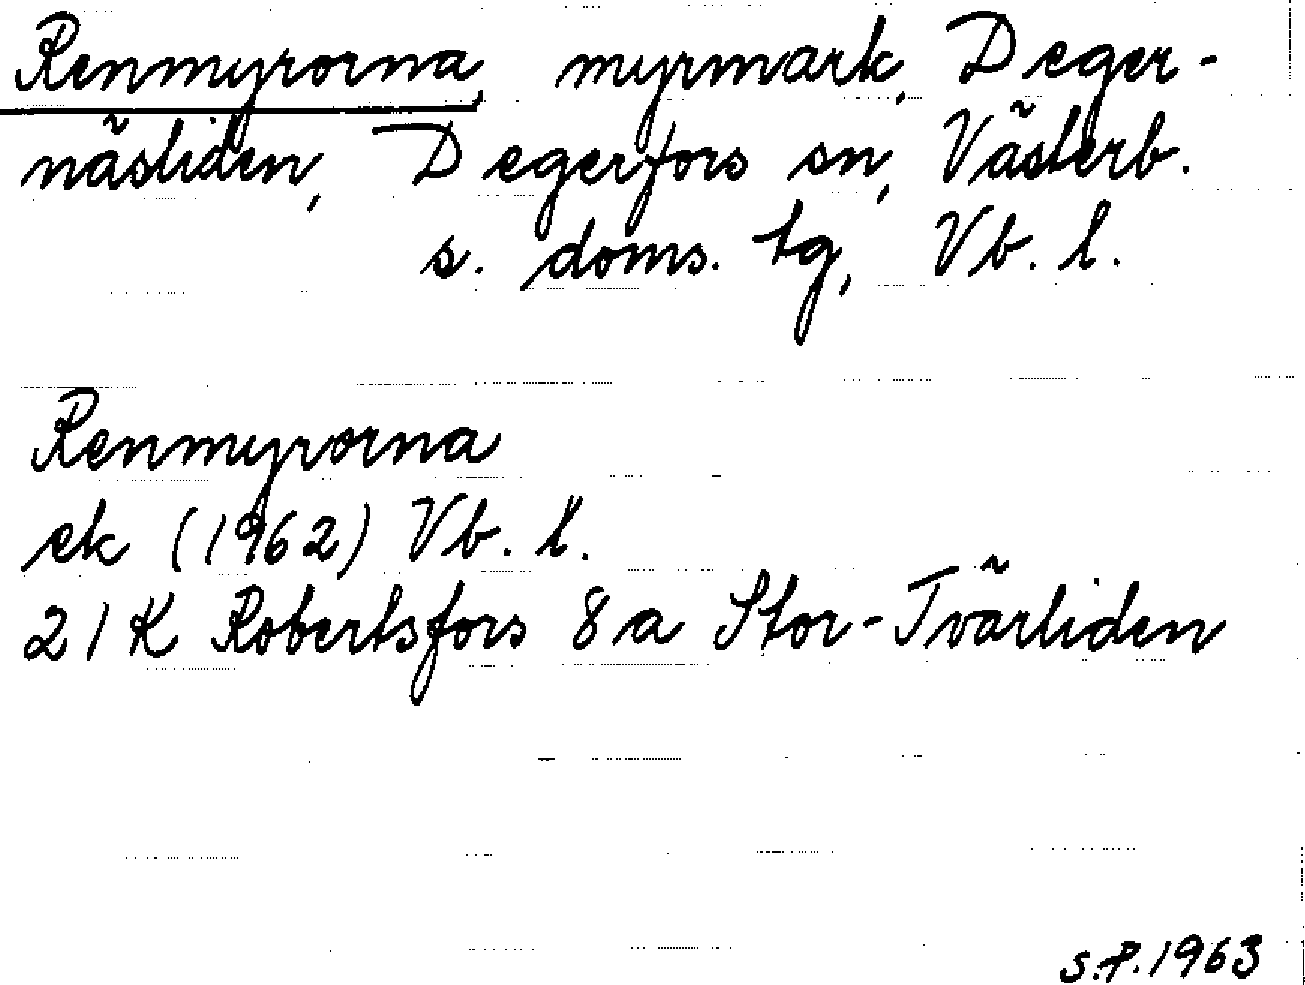 Renmyrorna, myrmark, Deger-
näsliden, Degerfors sn, Västerb.
s. doms. tg, Vb. l.
Renmyrorna
ek (1962) Vb. l.
21 K Robertsfors 8 a Stor-Tvärliden
S.P. 1963